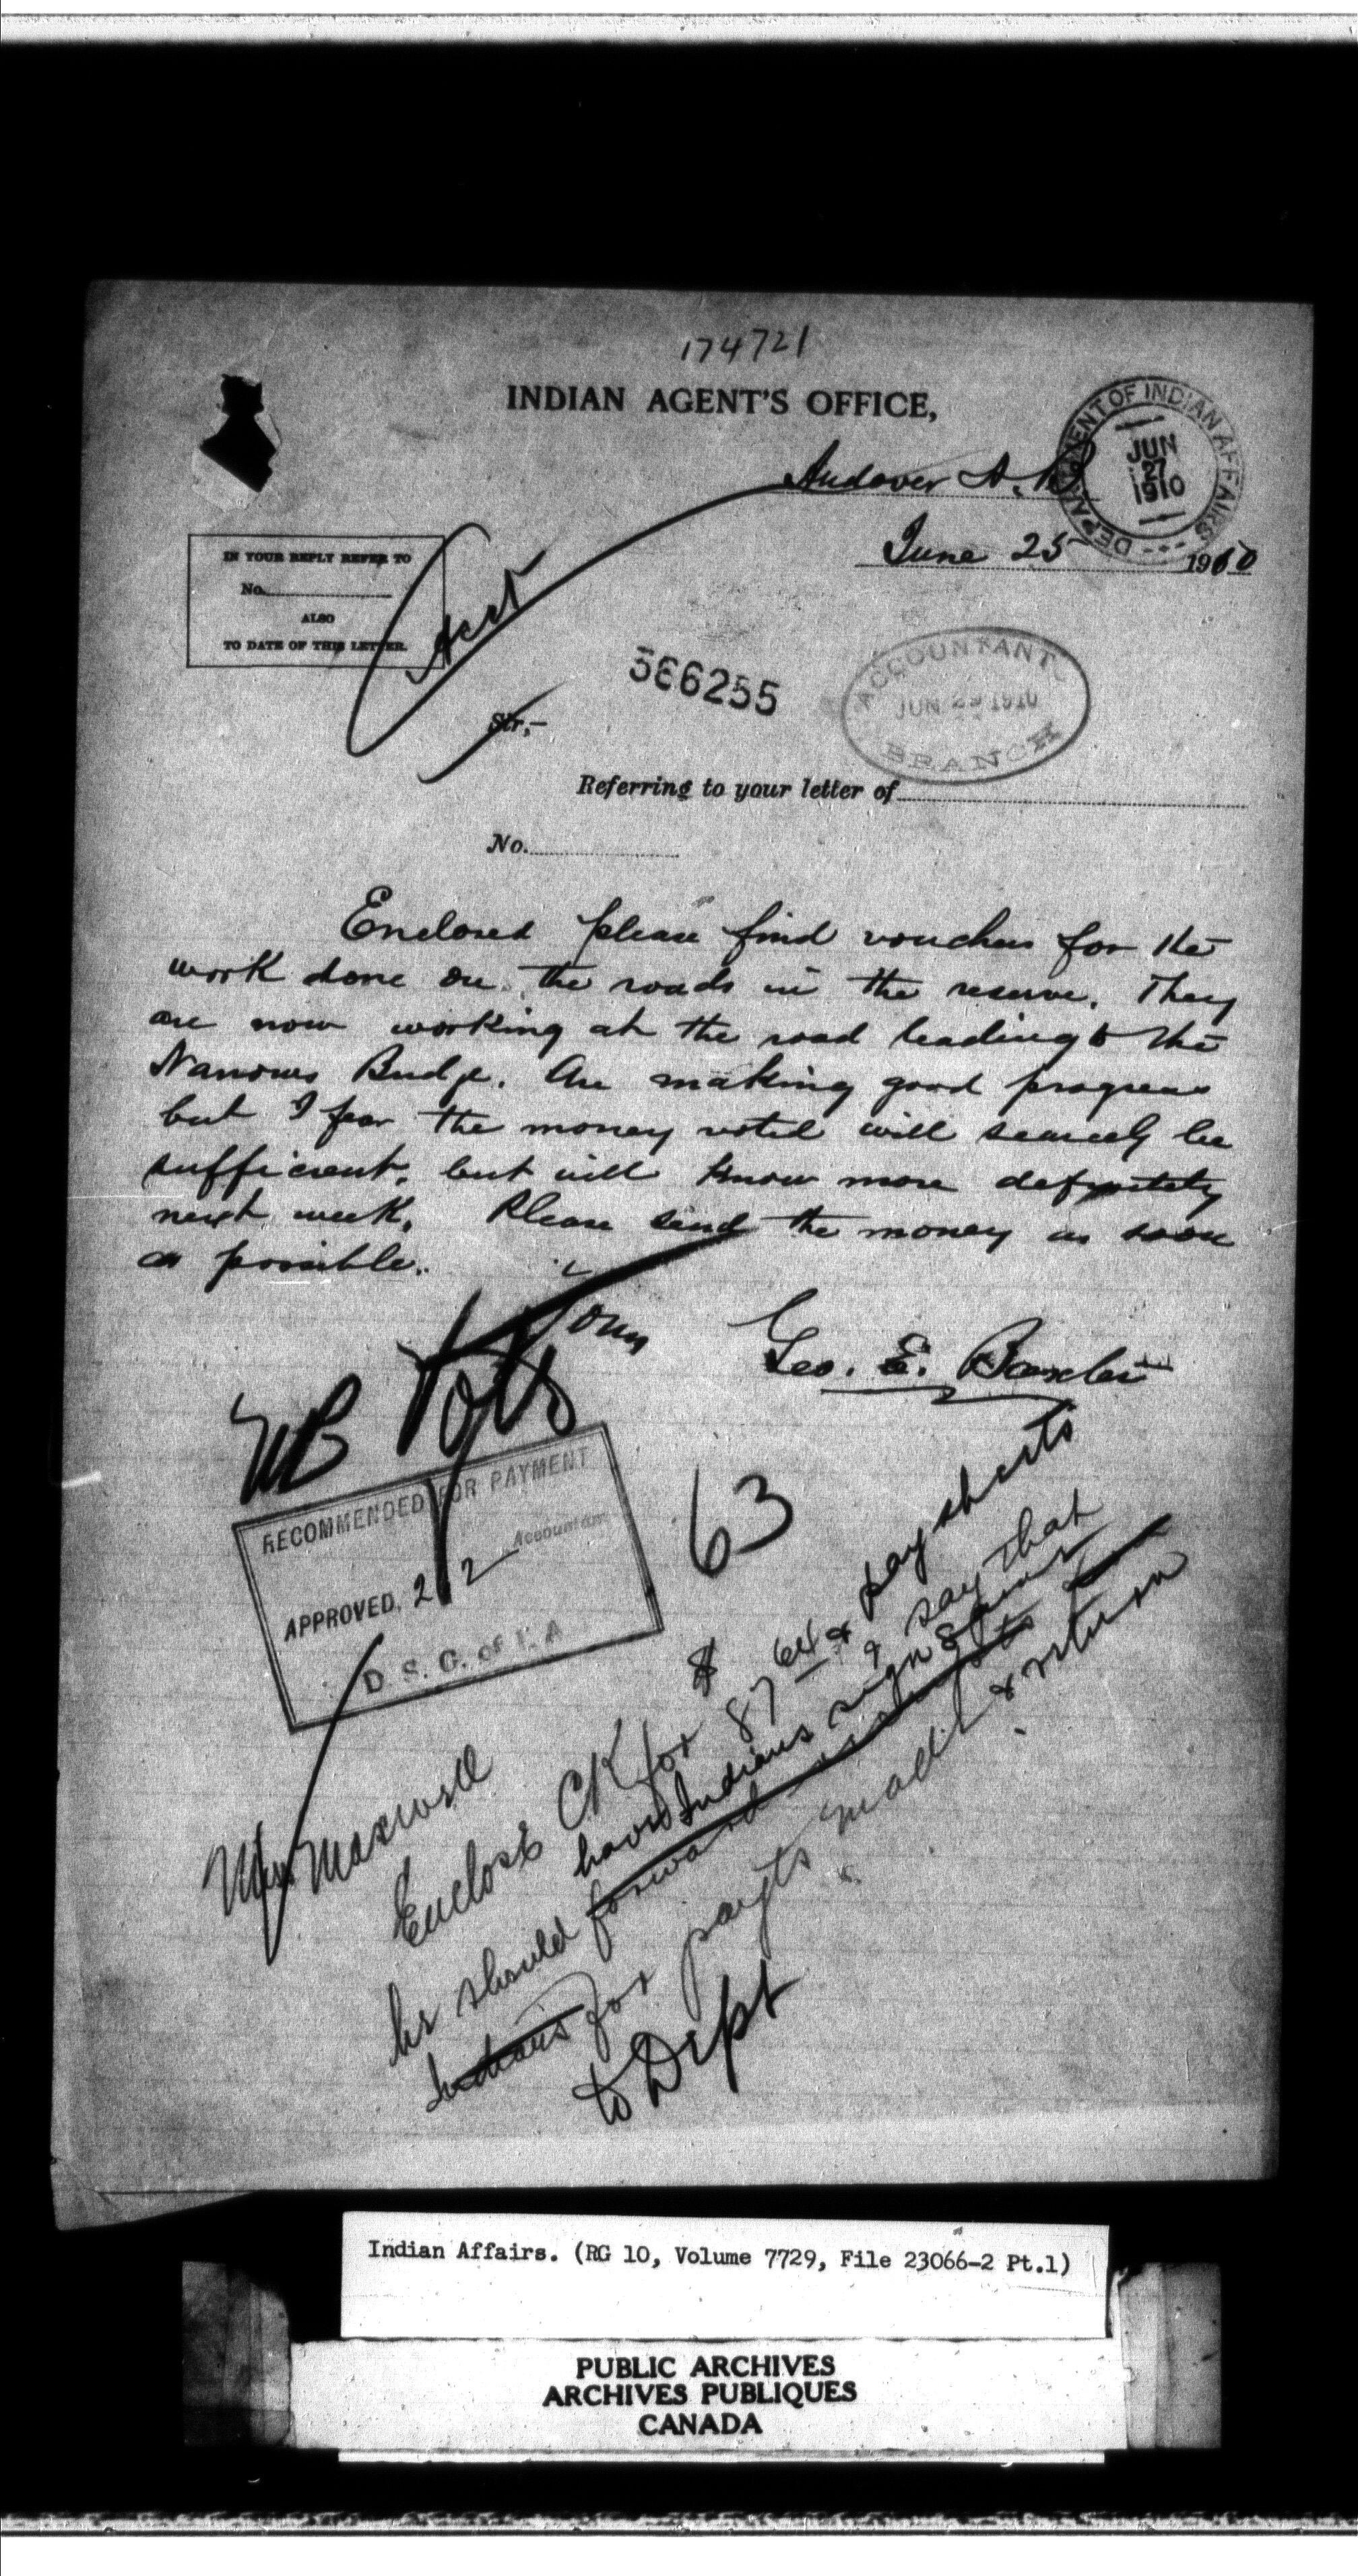 174721
INDIAN AGENT'S OFFICE,
Andover N.B.
DEPARTMENT OF INDIAN AFFAIRS
JUN
27
1910
June 25 1910
IN YOUR REPLY REFER TO
No.
ALSO
TO DATE OF THIS LETTER.
Acct
366255
ACCOUNTANT
JUN 29 1910
BRANCH
Sir,—
Referring to your letter of
No.
Enclosed please find vouchers for the
work done on the roads in the reserve. They
are now working at the road leading to the
Narrows Bridge. Are making good progress
but I fear the money voted will scarcely be
sufficient, but will know more definitely
next week. Please send the money as soon
as possible.
Yours
Geo. E. Baxter
NB
RECOMMENDED FOR PAYMENT
Accountant
APPROVED,
D. S. G. of I. A
63
Miss Maxwell
Enclose CK for $87 64 & pay sheets
& say that
he should have Indians sign
forward
Indians for payts made & return
to Dept
Indian Affairs. (RG 10, Volume 7729, File 23066-2 Pt.1)
PUBLIC ARCHIVES
ARCHIVES PUBLIQUES
CANADA